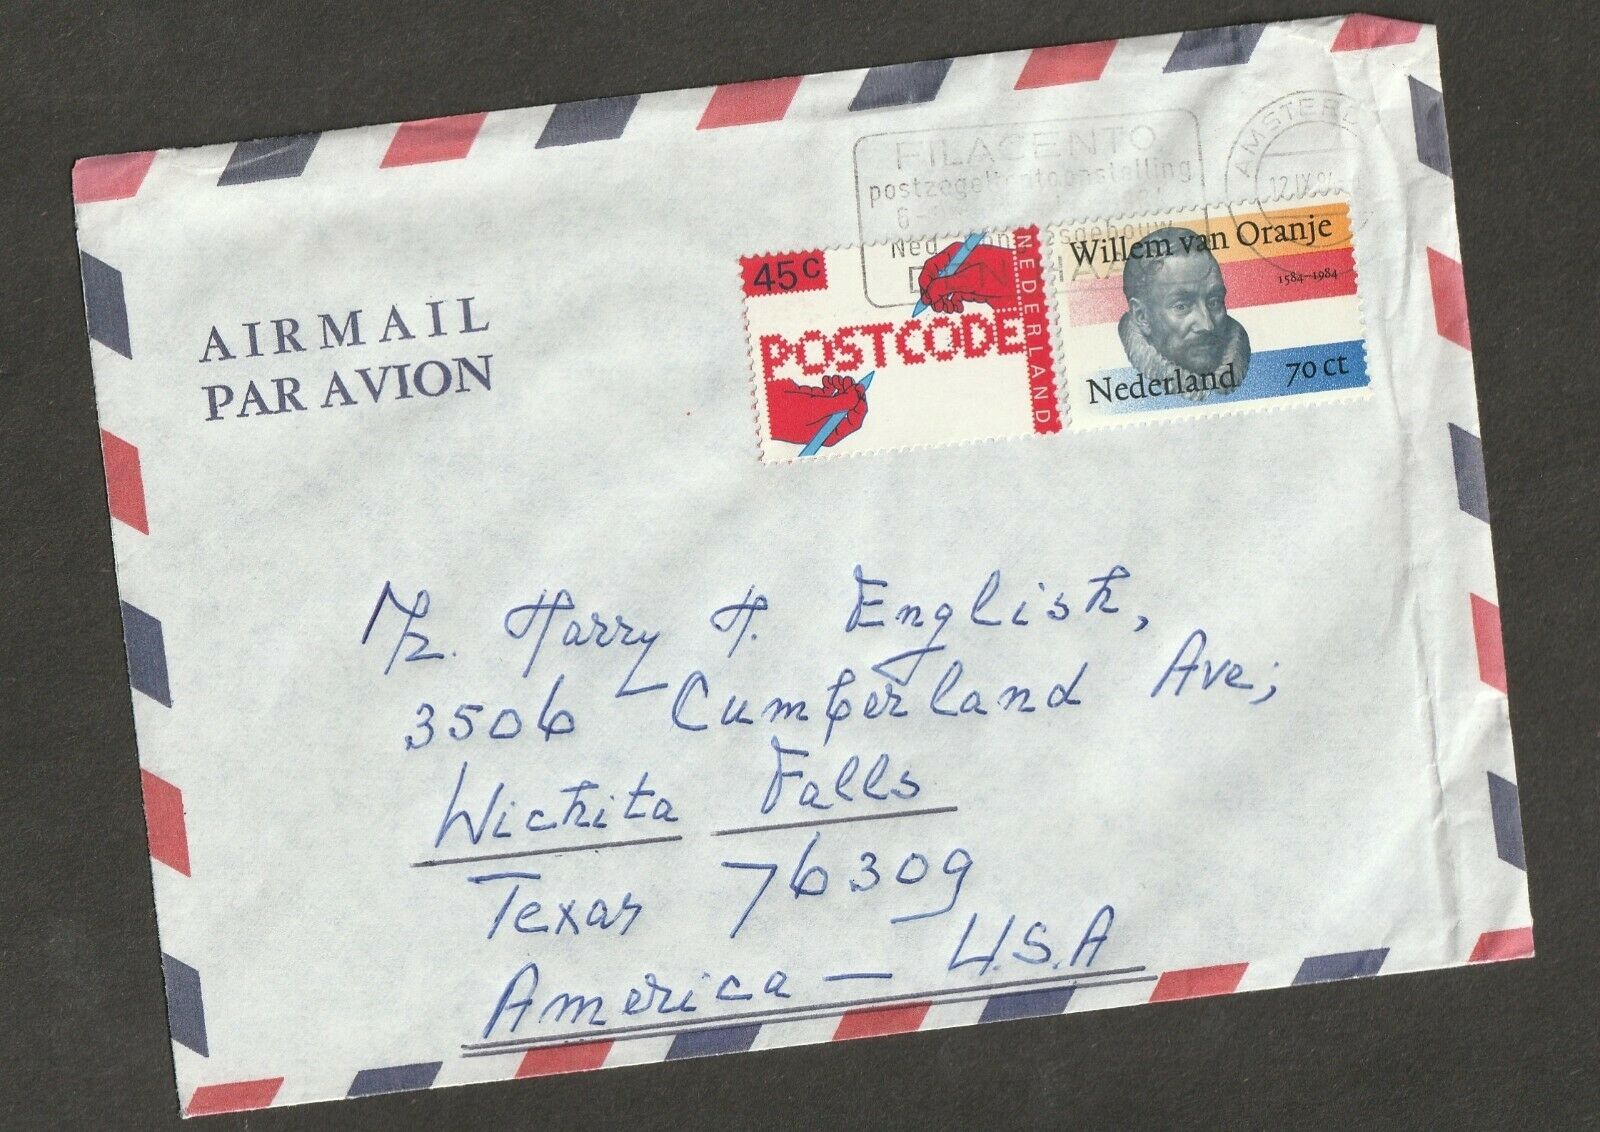 FILACENTO
postzegeltentoonstelling
6-
Ned
DEN HAAG
AMSTERD
12.IX.84
45c
POSTCODE
NEDERLAND
Willem van Oranje
1584-1984
Nederland 70 ct
AIRMAIL
PAR AVION
Mr. Harry H. English,
3506 Cumberland Ave;
Wichita Falls
Texas 76309
America - U.S.A